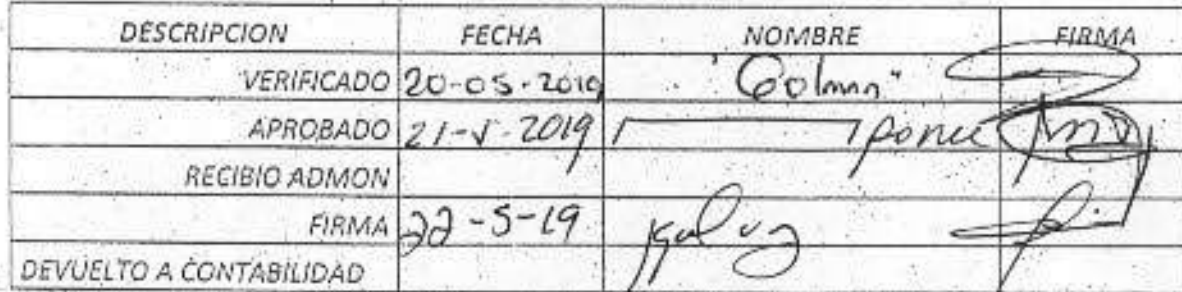 DESCRIPCION FECHA NOMBRE FIRMA
VERIFICADO 20-05-2019
APROBADO 21-V-2019 ponce
RECIBIO ADMON
FIRMA 22-5-19
DEVUELTO A CONTABILIDAD